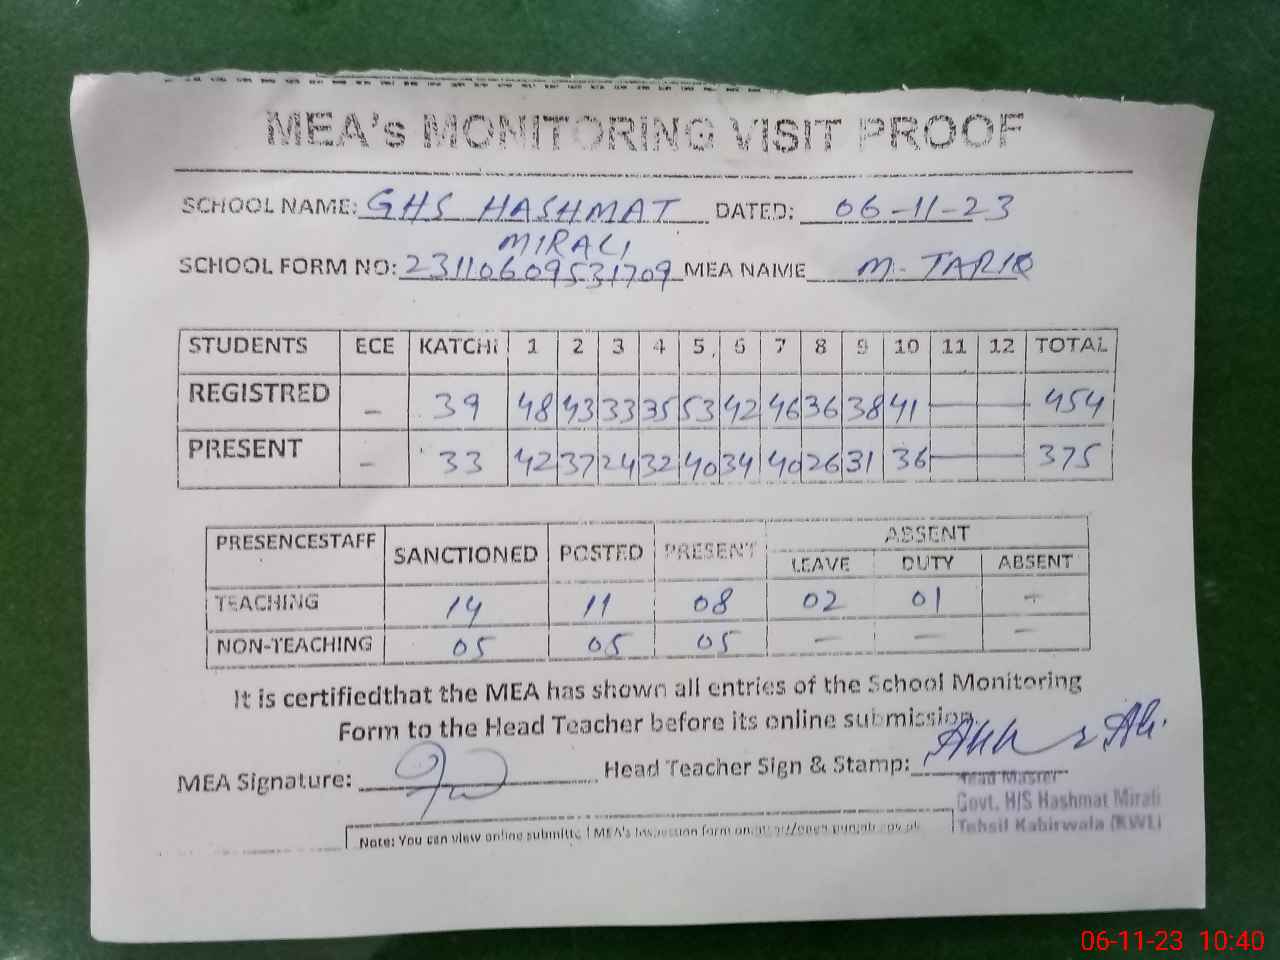 MEA's MONITORING VISIT PROOF
SCHOOL NAME: GHS HASHMAT DATED: 06-11-23
MIRALI
SCHOOL FORM NO: 23110609531709 MEA NAME M. TARIQ
STUDENTS ECE KATCHI 1 2 3 4 5 6 7 8 9 10 11 12 TOTAL
REGISTRED - 39 48 43 33 35 53 42 46 36 38 41 — — 454
PRESENT - 33 42 37 24 32 40 34 40 26 31 36 — — 375
PRESENCESTAFF SANCTIONED POSTED PRESENT ABSENT
LEAVE DUTY ABSENT
TEACHING 14 11 08 02 01 -
NON-TEACHING 05 05 05 - - -
It is certifiedthat the MEA has shown all entries of the School Monitoring
Form to the Head Teacher before its online submission.
MEA Signature: Head Teacher Sign & Stamp:
Head Master
Govt. H/S Hashmat Mirali
Tehsil Kabirwala (KWL)
Note: You can view online submitted MEA's Inspection form on
06-11-23 10:40